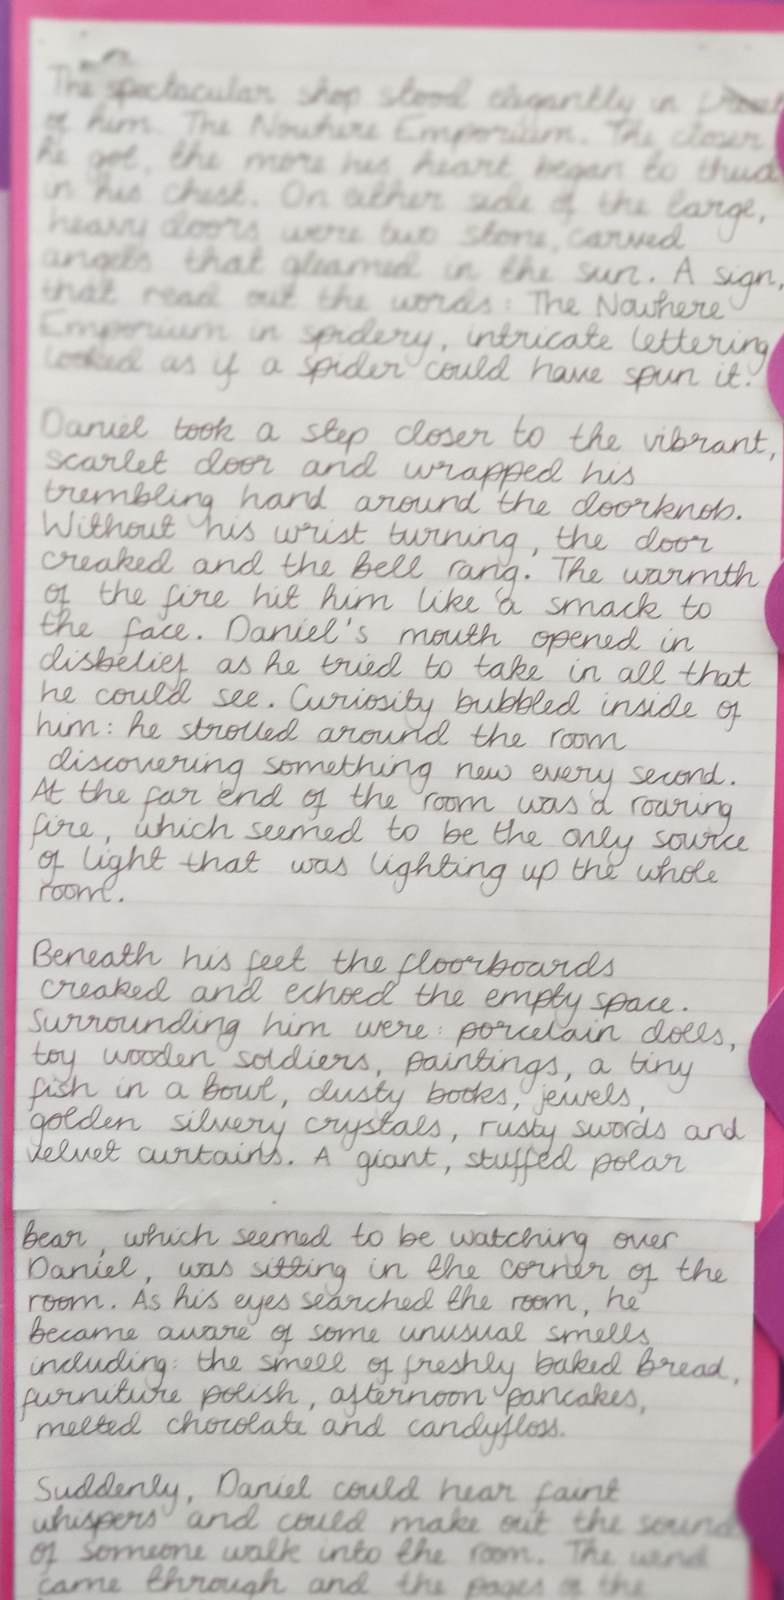 The spectacular shop stood elegantly in front
of him. The Nowhere Emporium. The closer
he got, the more his heart began to thud
in his chest. On either side of the large,
heavy doors were two stone, carved
angels that gleamed in the sun. A sign,
that read out the words: The Nowhere
Emporium in spidery, intricate lettering
looked as if a spider could have spun it.
Daniel took a step closer to the vibrant,
scarlet door and wrapped his
trembling hand around the doorknob.
Without his wrist turning, the door
creaked and the bell rang. The warmth
of the fire hit him like a smack to
the face. Daniel's mouth opened in
disbelief as he tried to take in all that
he could see. Curiosity bubbled inside of
him: he strolled around the room
discovering something new every second.
At the far end of the room was a roaring
fire, which seemed to be the only source
of light that was lighting up the whole
room.
Beneath his feet the floorboards
creaked and echoed the empty space.
Surrounding him were: porcelain dolls,
toy wooden soldiers, paintings, a tiny
fish in a bowl, dusty books, jewels,
golden silvery crystals, rusty swords and
velvet curtains. A giant, stuffed polar
bear, which seemed to be watching over
Daniel, was sitting in the corner of the
room. As his eyes searched the room, he
became aware of some unusual smells
including: the smell of freshly baked bread,
furniture polish, afternoon pancakes,
melted chocolate and candyfloss.
Suddenly, Daniel could hear faint
whispers and could make out the sound
of someone walk into the room. The wind
came through and the pages of the